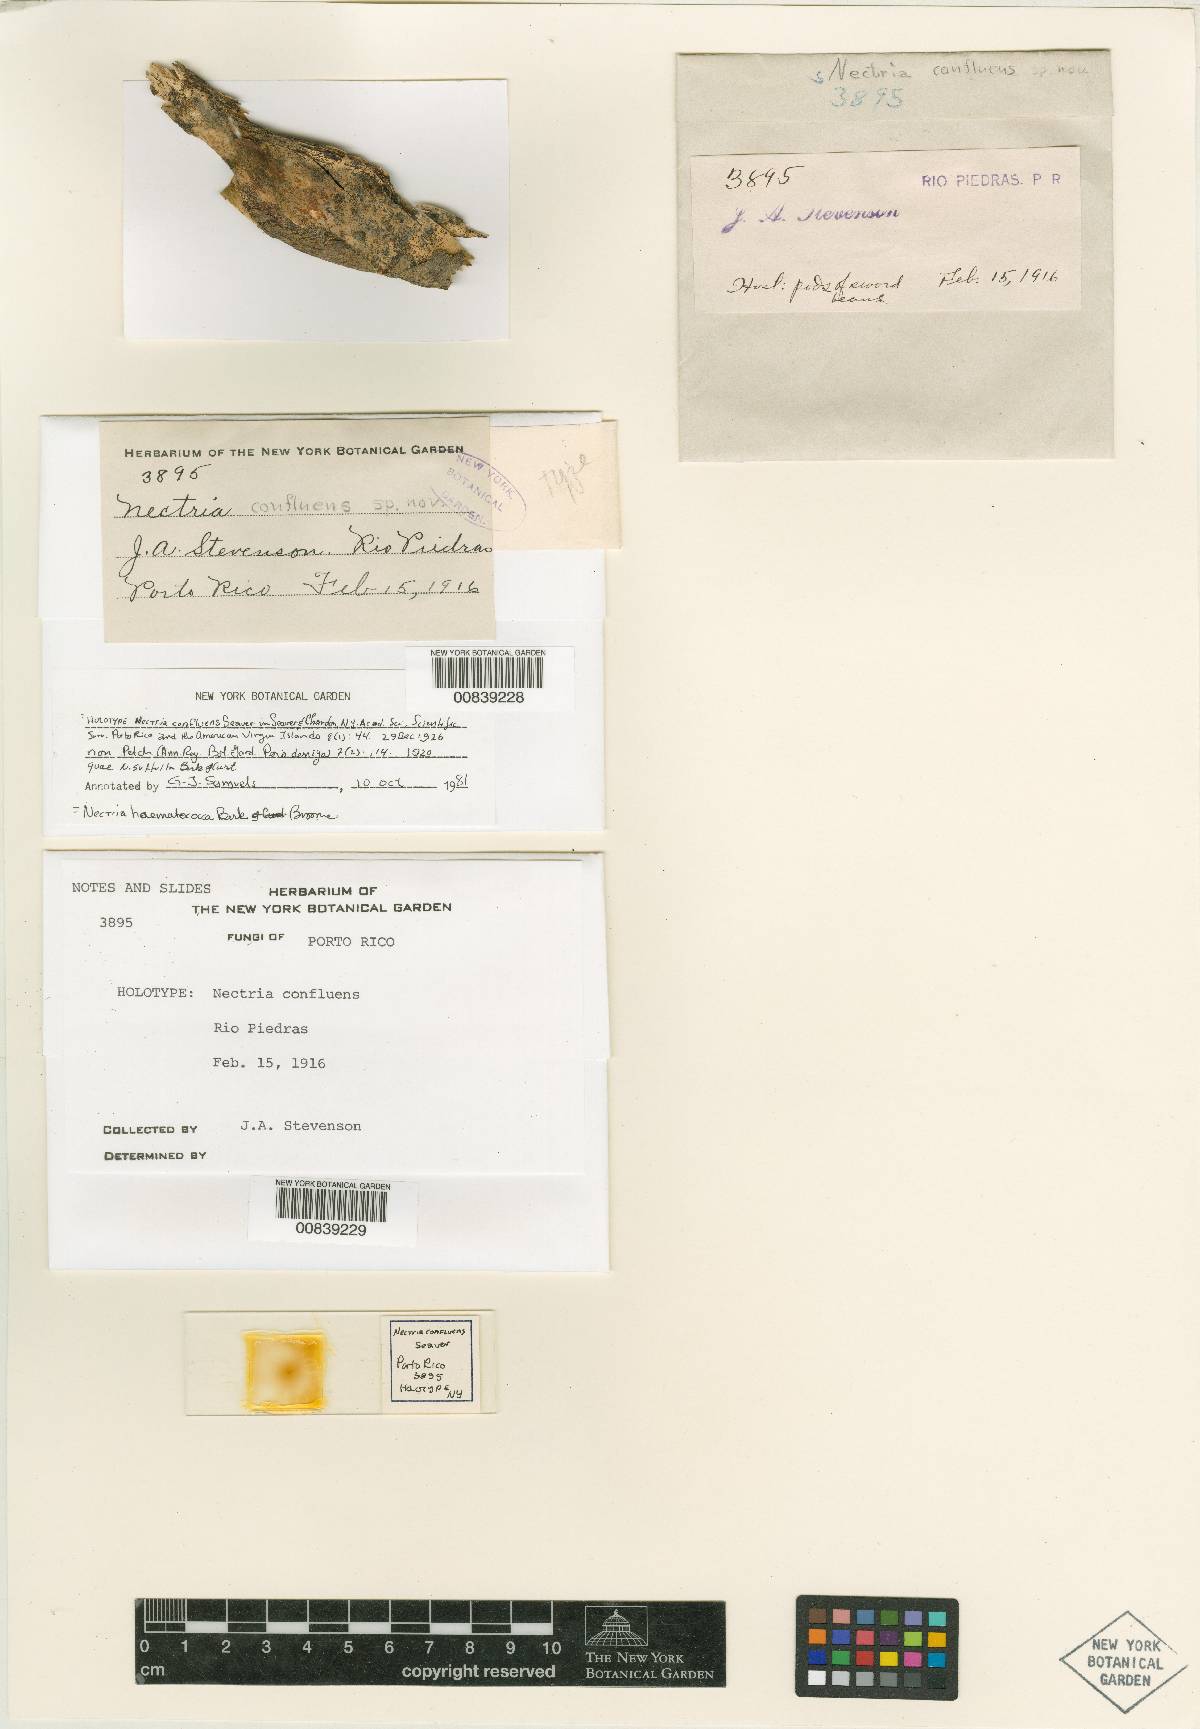 s Nectria confluens sp. nov
3895
3895
RIO PIEDRAS. P R
J. A. Stevenson
Host: pods of sword beans
Feb. 15, 1916
HERBARIUM OF THE NEW YORK BOTANICAL GARDEN
3895
Nectria confluens sp. nov.
J. A. Stevenson. Rio Piedras
Porto Rico Feb 15, 1916
NEW YORK
BOTANICAL
GARDEN.
type
NEW YORK BOTANICAL GARDEN
00839228
NEW YORK BOTANICAL GARDEN
HOLOTYPE Nectria confluens Seaver in Seaver & Chardon, N.Y. Acad. Sci. Scientific
Surv. Porto Rico and the American Virgin Islands 8(1): 44. 29 Dec 1926
non Petch (Ann. Roy. Bot. Gard. Peradeniya) 7(2): 14. 1920
quae N. suffulta Berk & Curt
Annotated by G. J. Samuels, 10 Oct 1981
= Nectria haematococca Berk & Broome
NOTES AND SLIDES
HERBARIUM OF
THE NEW YORK BOTANICAL GARDEN
3895
FUNGI OF PORTO RICO
HOLOTYPE: Nectria confluens
Rio Piedras
Feb. 15, 1916
COLLECTED BY J.A. Stevenson
DETERMINED BY
NEW YORK BOTANICAL GARDEN
00839229
Nectria confluens
Seaver
Porto Rico
3895
Holotype NY
0 1 2 3 4 5 6 7 8 9 10
cm
copyright reserved
THE NEW YORK
BOTANICAL GARDEN
NEW YORK
BOTANICAL
GARDEN